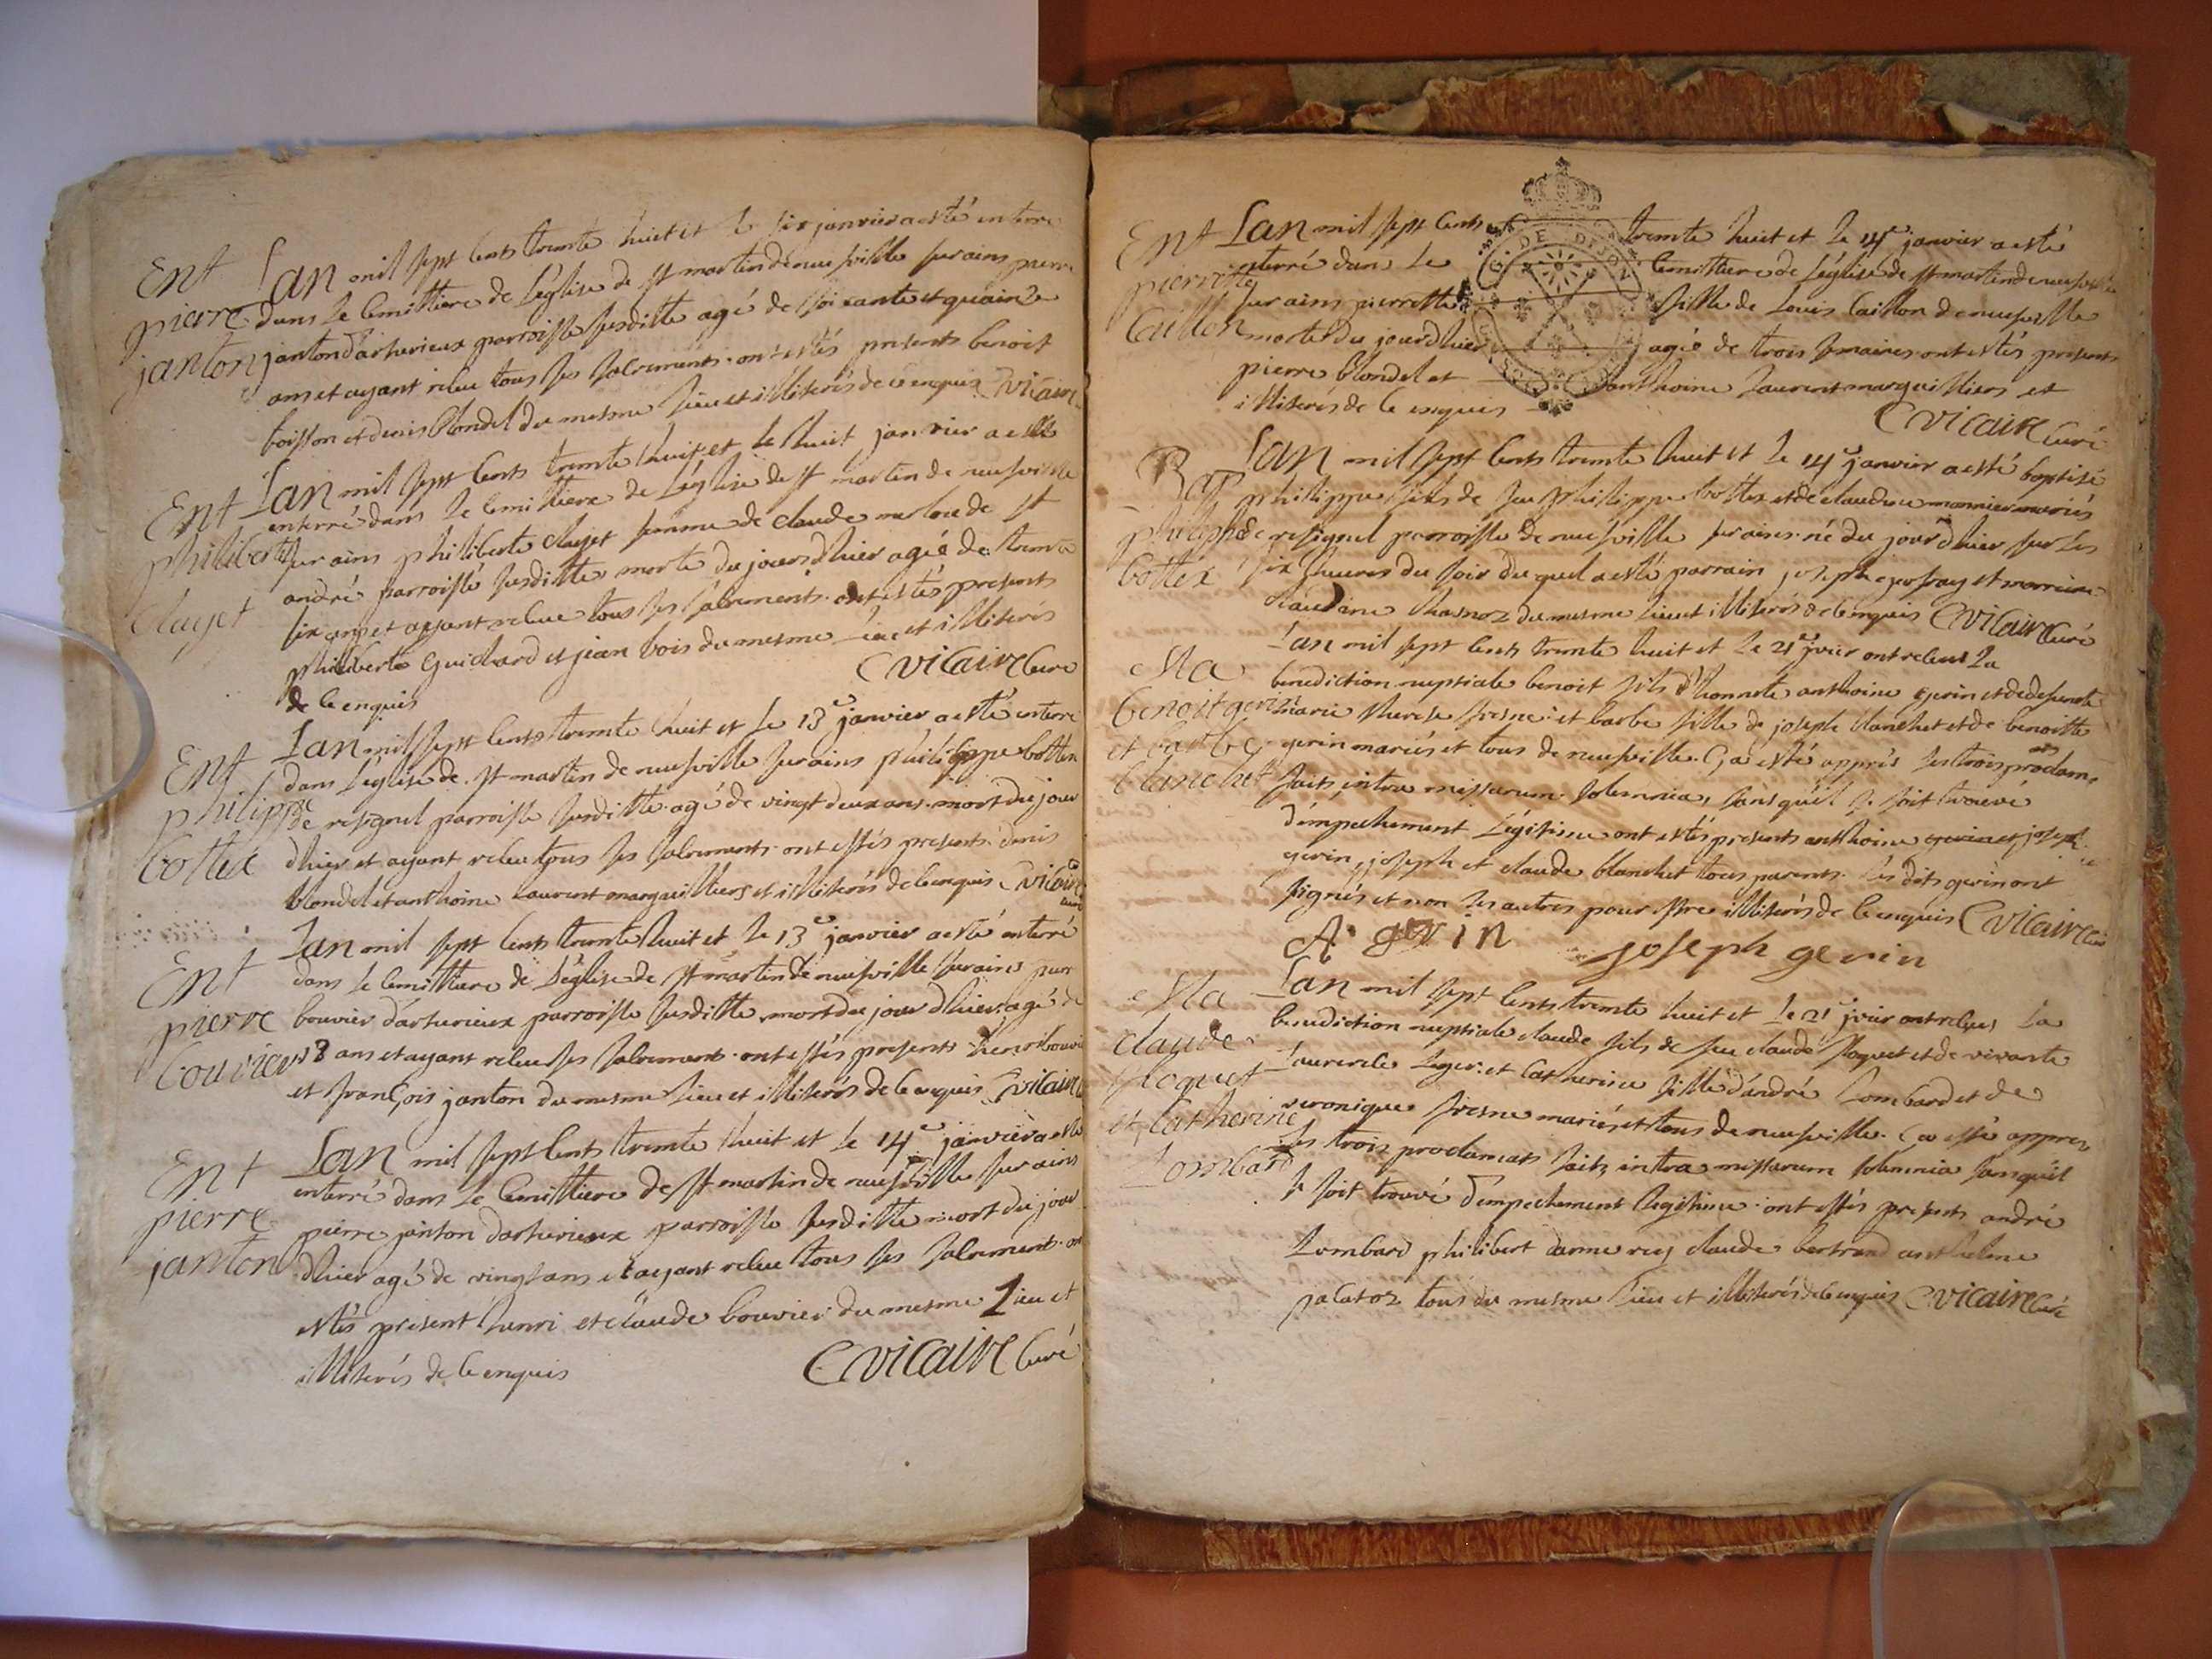 Ent
pierre
janton
Lan mil sept cents trente huict et le six janvier a esté enterré
dans le cemittiere de l'église de st martin de neufville sur ains pierre
janton d'arturieux parroisse susditte agé de soixante et quainze
ans et ayant receu tous ses sacrements. ont estés presents benoit
boisson et denis blondel du mesme lieu et illiterés de ce enquis Cvicaire
Ent
philiberte
clayet
Lan mil sept cents trente huit et le huit janvier a esté
enterré dans le cemittiere de l'église de st martin de neufville
sur ains philiberte clayet femme de claude de st
andré parroisse susditte morte du jours d'hier agée de trente
six ans et ayant receue tous ses sacrements. ont estés presents
philiberte Guichard et jean bois du mesme lieu et illiterés
de ce enquis Cvicaire Curé
Ent
philippe
bottex
Lan mil sept cents trente huit et le 13e janvier a esté enterré
dans l'église de st martin de neufville sur ains philippe bottex
de resignel parroisse susditte agé de vingt deux ans mort du jour
d'hier et ayant receu tous ses sacrements ont estés presents denis
blondel et anthoine Laurent marguilliers et illiterés de ce enquis Cvicaire
curé
Ent
pierre
bouvier
Lan mil sept cents trente huit et le 13e janvier a esté enterré
dans le cemittiere de l'église de st martin de neufville sur ains pierre
bouvier d'arturieux parroisse susditte mort du jour d'hier agé de
18 ans et ayant receu ses sacrement. ont estés presents henri bouvier
et françois janton du mesme lieu et illiterés de ce enquis Cvicaire
Ent
pierre
janton
Lan mil sept cents trente huit et le 14e janvier a esté
enterré dans le cemittiere de st martin de neufville sur ains
pierre janton d'arturieux parroisse susditte mort du jour
d'hier agé de vingt ans et ayant receu tous ses sacrement. ont
estés present henri et claude bouvier du mesme lieu et
illiterés de ce enquis Cvicaire Curé
Ent
pierrette
Caillon
DE DIJON
Lan mil sept cents trente huit et le 14e janvier a esté
enterré dans le cemittiere de l'église de st martin de neufville
sur ains pierrette fille de Louis Caillon de neufville
morte du jour d'hier agée de trois semaines ont estés present
pierre blondel et anthoine Laurent marguilliers et
illiterés de ce enquis Cvicaire Curé
Bap
philippe
bottex
Lan mil sept cents trente huit et le 14e janvier a esté baptisé
philippe fils de feu philippe bottex et de claudine monnier mariés
de resignel parroisse de neufville sur ains. né du jour d'hier sur les
six heures du soir duquel a esté parrain joseph et marraine
claudine du mesme lieu et illiterés de ce enquis Cvicaire Curé
Ma
benoit gerin
et barbe
blanchet
Lan mil sept cents trente huit et le 21e jvier ont receus la
benediction nuptiale benoit fils d'honneste anthoine gerin et de defuncte
marie therese fresne: et barbe fille de joseph blanchet et de benoitte
gerin mariés et tous de neufville. Ça esté apprés les trois proclam-
faits, intra missarum solemnia, sans qu'il se soit trouvé
d'empechement Légitime ont estés presents anthoine gerin et joseph
gerin, joseph et claude blanchet tous parents. Lesdits gerin ont
signés et non les autres pour estre illiterés de ce enquis Cvicaire Curé
A gerin joseph gerin
Ma
claude
floquet
et Catherine
Lombard
Lan mil sept cents trente huit et le 21e jvier ont receus la
benediction nuptiale claude fils de feu claude floquet et de vivante
Laurence Leger: et Catherine fille d'andré Lombard et de
veronique fresne mariés et tous de neufville. Ça esté apprés
les trois proclamats faits, intra missarum solemnia sans qu'il
se soit trouvé d'empechement legitime. ont estés presents andré
Lombard philibert claude bertrand anthelme
pacatoz tous du mesme lieu et illiterés de ce enquis Cvicaire Curé